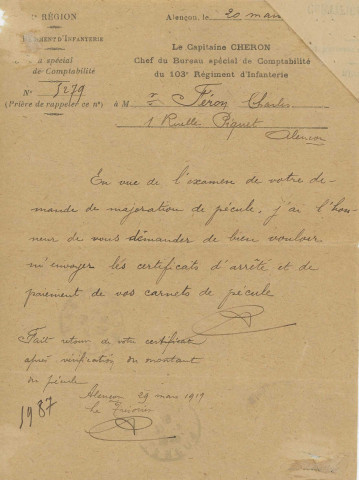 RÉGION
Alençon, le 20 mars
D'INFANTERIE
Le Capitaine CHERON
spécial
de Comptabilité
Chef du Bureau spécial de Comptabilité
du 103e Régiment d'Infanterie
N° 5279
(Prière de rappeler ce n°)
à M r Féron Charles
1 Ruelle Piquet
Alençon
En vue de l'examen de votre de-
mande de majoration de pécule, j'ai l'hon-
neur de vous demander de bien vouloir
m'envoyer les certificats d'arrêté et de
paiement de vos carnets de pécule
Fait retour de votre certificat
après vérification du montant
du pécule
Alençon 29 mars 1919
le Trésorier
1987